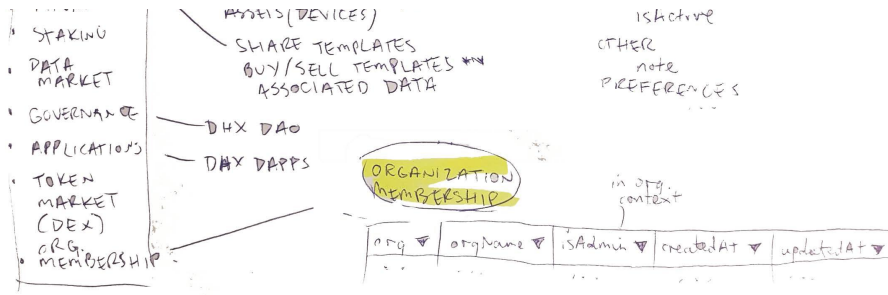 STAKING
DATA
MARKET
GOVERNANCE
APPLICATIONS
TOKEN
MARKET
(DEX)
ORG.
MEMBERSHIP
ASSETS (DEVICES)
SHARE TEMPLATES
BUY/SELL TEMPLATES
ASSOCIATED DATA
DHX DAO
DHX DAPPS
isActive
OTHER
note
PREFERENCES
...
ORGANIZATION
MEMBERSHIP
in org.
context
org ▼ orgName ▼ isAdmin ▼ createdAt ▼ updatedAt ▼